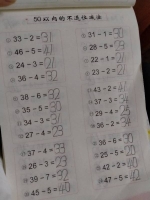 50以内的不退位减法
33-2=31
46-5=41
24-3=21
36-4=32
38-6=32
35-5=30
34-3=31
27-4=23
26-3=23
39-7=32
45-5=40
31-1=30
28-5=23
22-1=
23-2=21
43-2=
37-3=34
36-6=30
25-5=20
42-2=40
47-5=42